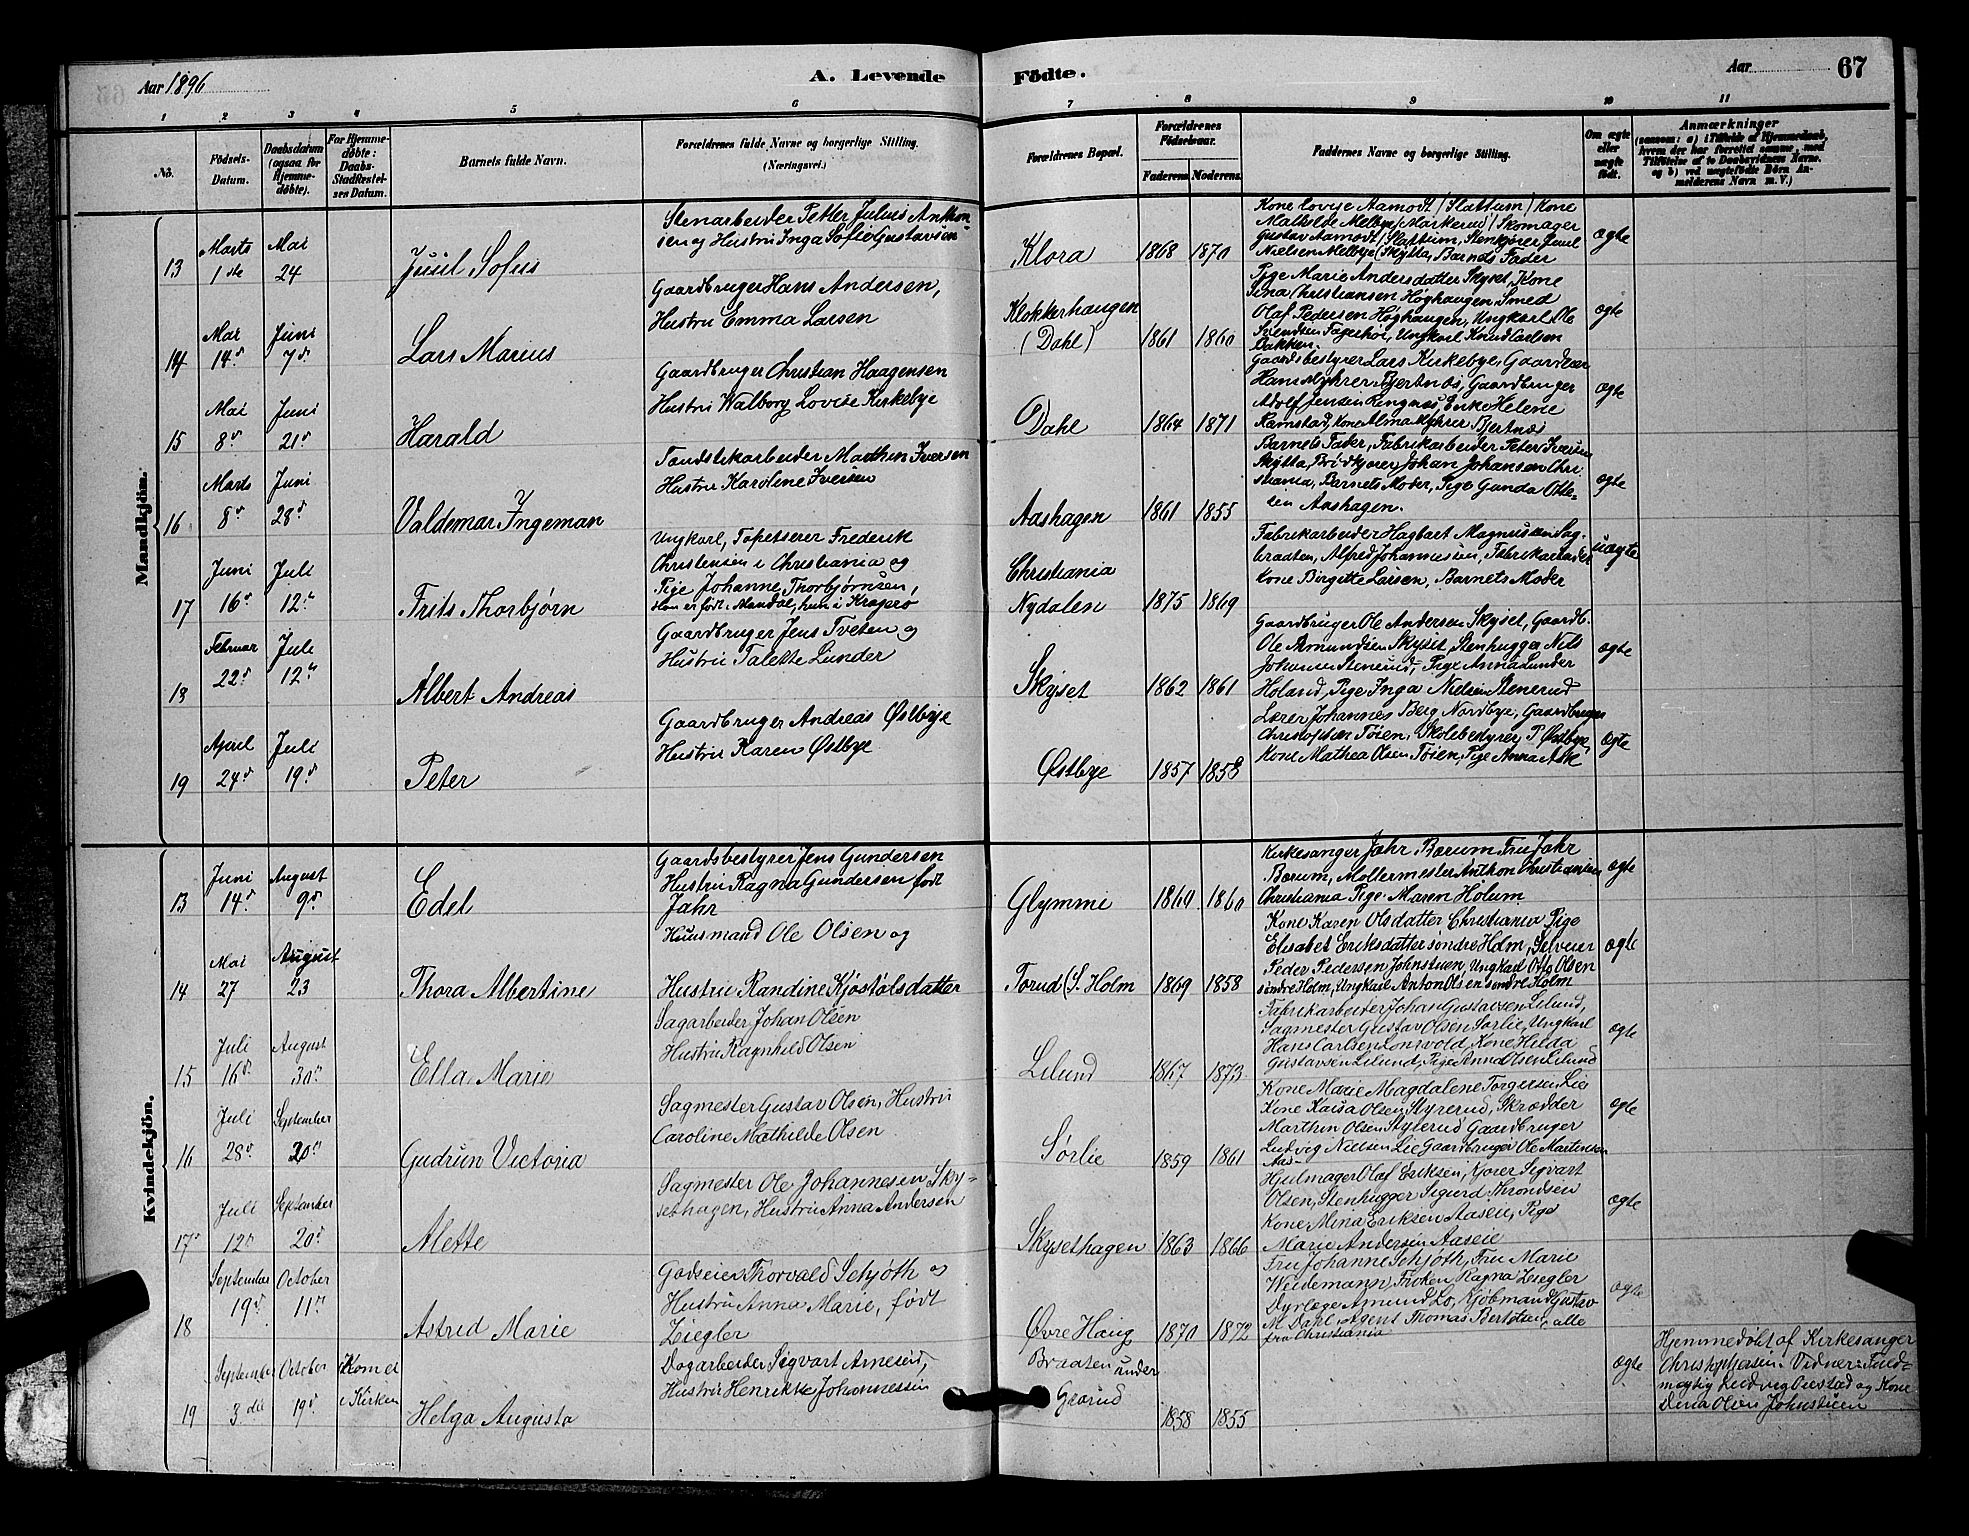 Aar 1896
A. Levende
Födte.
Aar
67
1 2 3 4 5 6 7 8 9 10 11
No.
Födsels-Datum.
Daabsdatum (ogsaa for Hjemme-döbte).
For Hjemme-döbte: Daabs-Stadfæstelses Datum.
Barnets fulde Navn.
Forældrenes fulde Navne og borgerlige Stilling. (Næringsvei.)
Forældrenes Bopæl.
Forældrenes Födselsaar.
Faderens. Moderens.
Faddernes Navne og borgerlige Stilling.
Om ægte eller uægte födt.
Anmærkninger
(saasom: a) i Tilfælde af Hjemmedaab,
hvem der har forrettet samme, med
Tilföielse af to Daabsvidners Navne.
og b) ved uægtefödte Börn An-
melderens Navn m. V.)
Mandkjön.
13 Marts 1ste Mai 24 Juul Sofus
Stenarbeider Petter Julius Anthon
sen og Hustru Inga Sofie Gustavsen
Klora 1868 1870
Kone Lovise Aamodt (Slattum) Kone
Mathilde Melbye (Markerud) Skomager
Gustav Aamodt (Slattum, Stenkjører Juul
Nielsen Melbye (Skytta, Barnets Fader
ægte
14 Mai 14de Juni 7de Lars Marius
Gaardbruger Hans Andersen,
Hustru Emma Larsen
Klokkerhaugen
(Dahl) 1861 1860
Pige Marie Andersdatter Skyset, Kone
Tina Christiansen Høghaugen, Smed
Olaf Pedersen Høghaugen, Ungkarl Ole
Svendsen Fagerhøi, Ungkarl Knud Carlsen
Bakken.
ægte
15 Mai 8de Juni 21de Harald
Gaardbruger Christian Haagensen
Hustru Walborg Lovise Kirkebye
Dahl 1864 1871
Gaardsbestyrer Lars Kirkebye, Gaardeier
Hans Myhrer Bjertnæs, Gaardbruger
Adolf Jensen Ringnæs, Enke Helene
Ramstad, Kone Alma Myhrer Bjertnæs
ægte
16 Marts 8de Juni 28de Valdemar Ingeman
Tændstikarbeider Marthin Iversen
Hustru Karoline Iversen
Aashagen 1861 1855
Barnets Fader, Fabrikarbeider Peter Iversen
Skytta, Brødkjører Johan Johansen Chri
stiania, Barnets Moder, Pige Gunda Otte-
sen Aashagen.
ægte
17 Juni 16de Juli 12te Frits Thorbjørn
Ungkarl, Tapetserer Frederik
Christensen i Christiania og
Pige Johanne Thorbjørnsen,
Han er født i Mandal, hun i Kragerø
Christiania
Nydalen 1875 1869
Fabrikarbeider Hagbart Magnussen Sag-
braaten, Alfred Johannessen, Fabrikarbeider
Kone Birgitte Larsen, Barnets Moder
uægte
18 Februar 22de Juli 12te Albert Andreas
Gaardbruger Jens Tveten og
Hustru Talette Lunder
Skyset 1862 1861
Gaardbruger Ole Andersen Skyset, Gaardb.
Ole Asmundsen Skyset, Stenhugger Nils
Johansen Stenerud, Pige Anna Lunder
Holand, Pige Inga Nielsen Stenerud
ægte
19 April 24de Juli 19de Peter
Gaardbruger Andreas Østbye
Hustru Karen Østbye
Østbye 1857 1858
Lærer Johannes Berg Nordbye, Gaardbruger
Christoffer Tøien, Skolebestyrer P. Østbye,
Kone Mathea Olsen Tøien, Pige Anna Ask
ægte
Kvindekjön.
13 Juni 14de August 9de Edel
Gaardsbestyrer Jens Gundersen
Hustru Ragna Gundersen født
Jahr
Glymmi 1869 1860
Kirkesanger Jahr Bærum, Fru Jahr
Bærum, Møllermester Anthon Christiansen
Christiania Pige Maren Holum
ægte
14 Mai 27 August 23 Thora Albertine
Huusmand Ole Olsen og
Hustru Randine Kjøstølsdatter
Torud (S. Holm 1869 1858
Kone Karen Olsdatter Christiania Pige
Elisabet Eriksdatter søndre Holm, Selveier
Peder Pedersen Johnstuen, Ungkarl Otto Olsen
søndre Holm, Ungkarl Anton Olsen søndre Holm
ægte
15 Juli 16de August 30te Ella Marie
Sagarbeider Johan Olsen
Hustru Ragnhild Olsen
Lilund 1867 1873
Fabrikarbeider Johan Gustavsen Lilund,
Sagmester Gustav Olsen Sørlie, Ungkarl
Hans Carlsen Lonsvold, Kone Hilda
Gustavsen Lilund, Pige Anna Olsen Lilund
ægte
16 Juli 28de September 20de Gudrun Victoria
Sagmester Gustav Olsen, Hustru
Caroline Mathilde Olsen
Sørlie 1859 1861
Kone Marie Magdalene Torgersen Lie
Kone Kaisa Olsen, Styrerud, Skrædder
Marthin Olsen Styrerud Gaardbruger
Ludvig Nielsen Lie Gaardbruger Ole Martinsen
Aas
ægte
17 Juli 12te September 20de Alette
Sagmester Ole Johannesen Sky-
sethagen, Hustru Anna Andersen
Skysethagen 1863 1866
Hjulmager Olaf Eriksen, Kjører Sigvart
Olsen, Stenhugger Sigurd Throndsen
Kone Mina Eriksen Aasen, Pige
Marie Andersen Aaseie
ægte
18 September 19de October 11te Astrid Marie
Godseier Thorvald Schjøth og
Hustru Anna Marie, født
Ziegler
Øvre Haug 1870 1872
Fru Johanne Schjøth, Fru Marie
Weidemann, Frøken Ragna Ziegler
Dyrlæge Amund Lo, Kjøbmand Gustav
M. Dahl, Agent Thomas Bertelsen, alle
fra Christiania
ægte
19 September 3die October 19de Kom ei i Kirken Helga Augusta
Dagarbeider Sigvart Arnesen,
Hustru Henrikke Johannessen
Braaten under
Grorud 1858 1855
ægte
Hjemmedøbt af Kirkesanger
Christophersen. Vidner: Fuld-
mægtig Ludvig Oustad og Kone
Dina Olsen Johnstuen